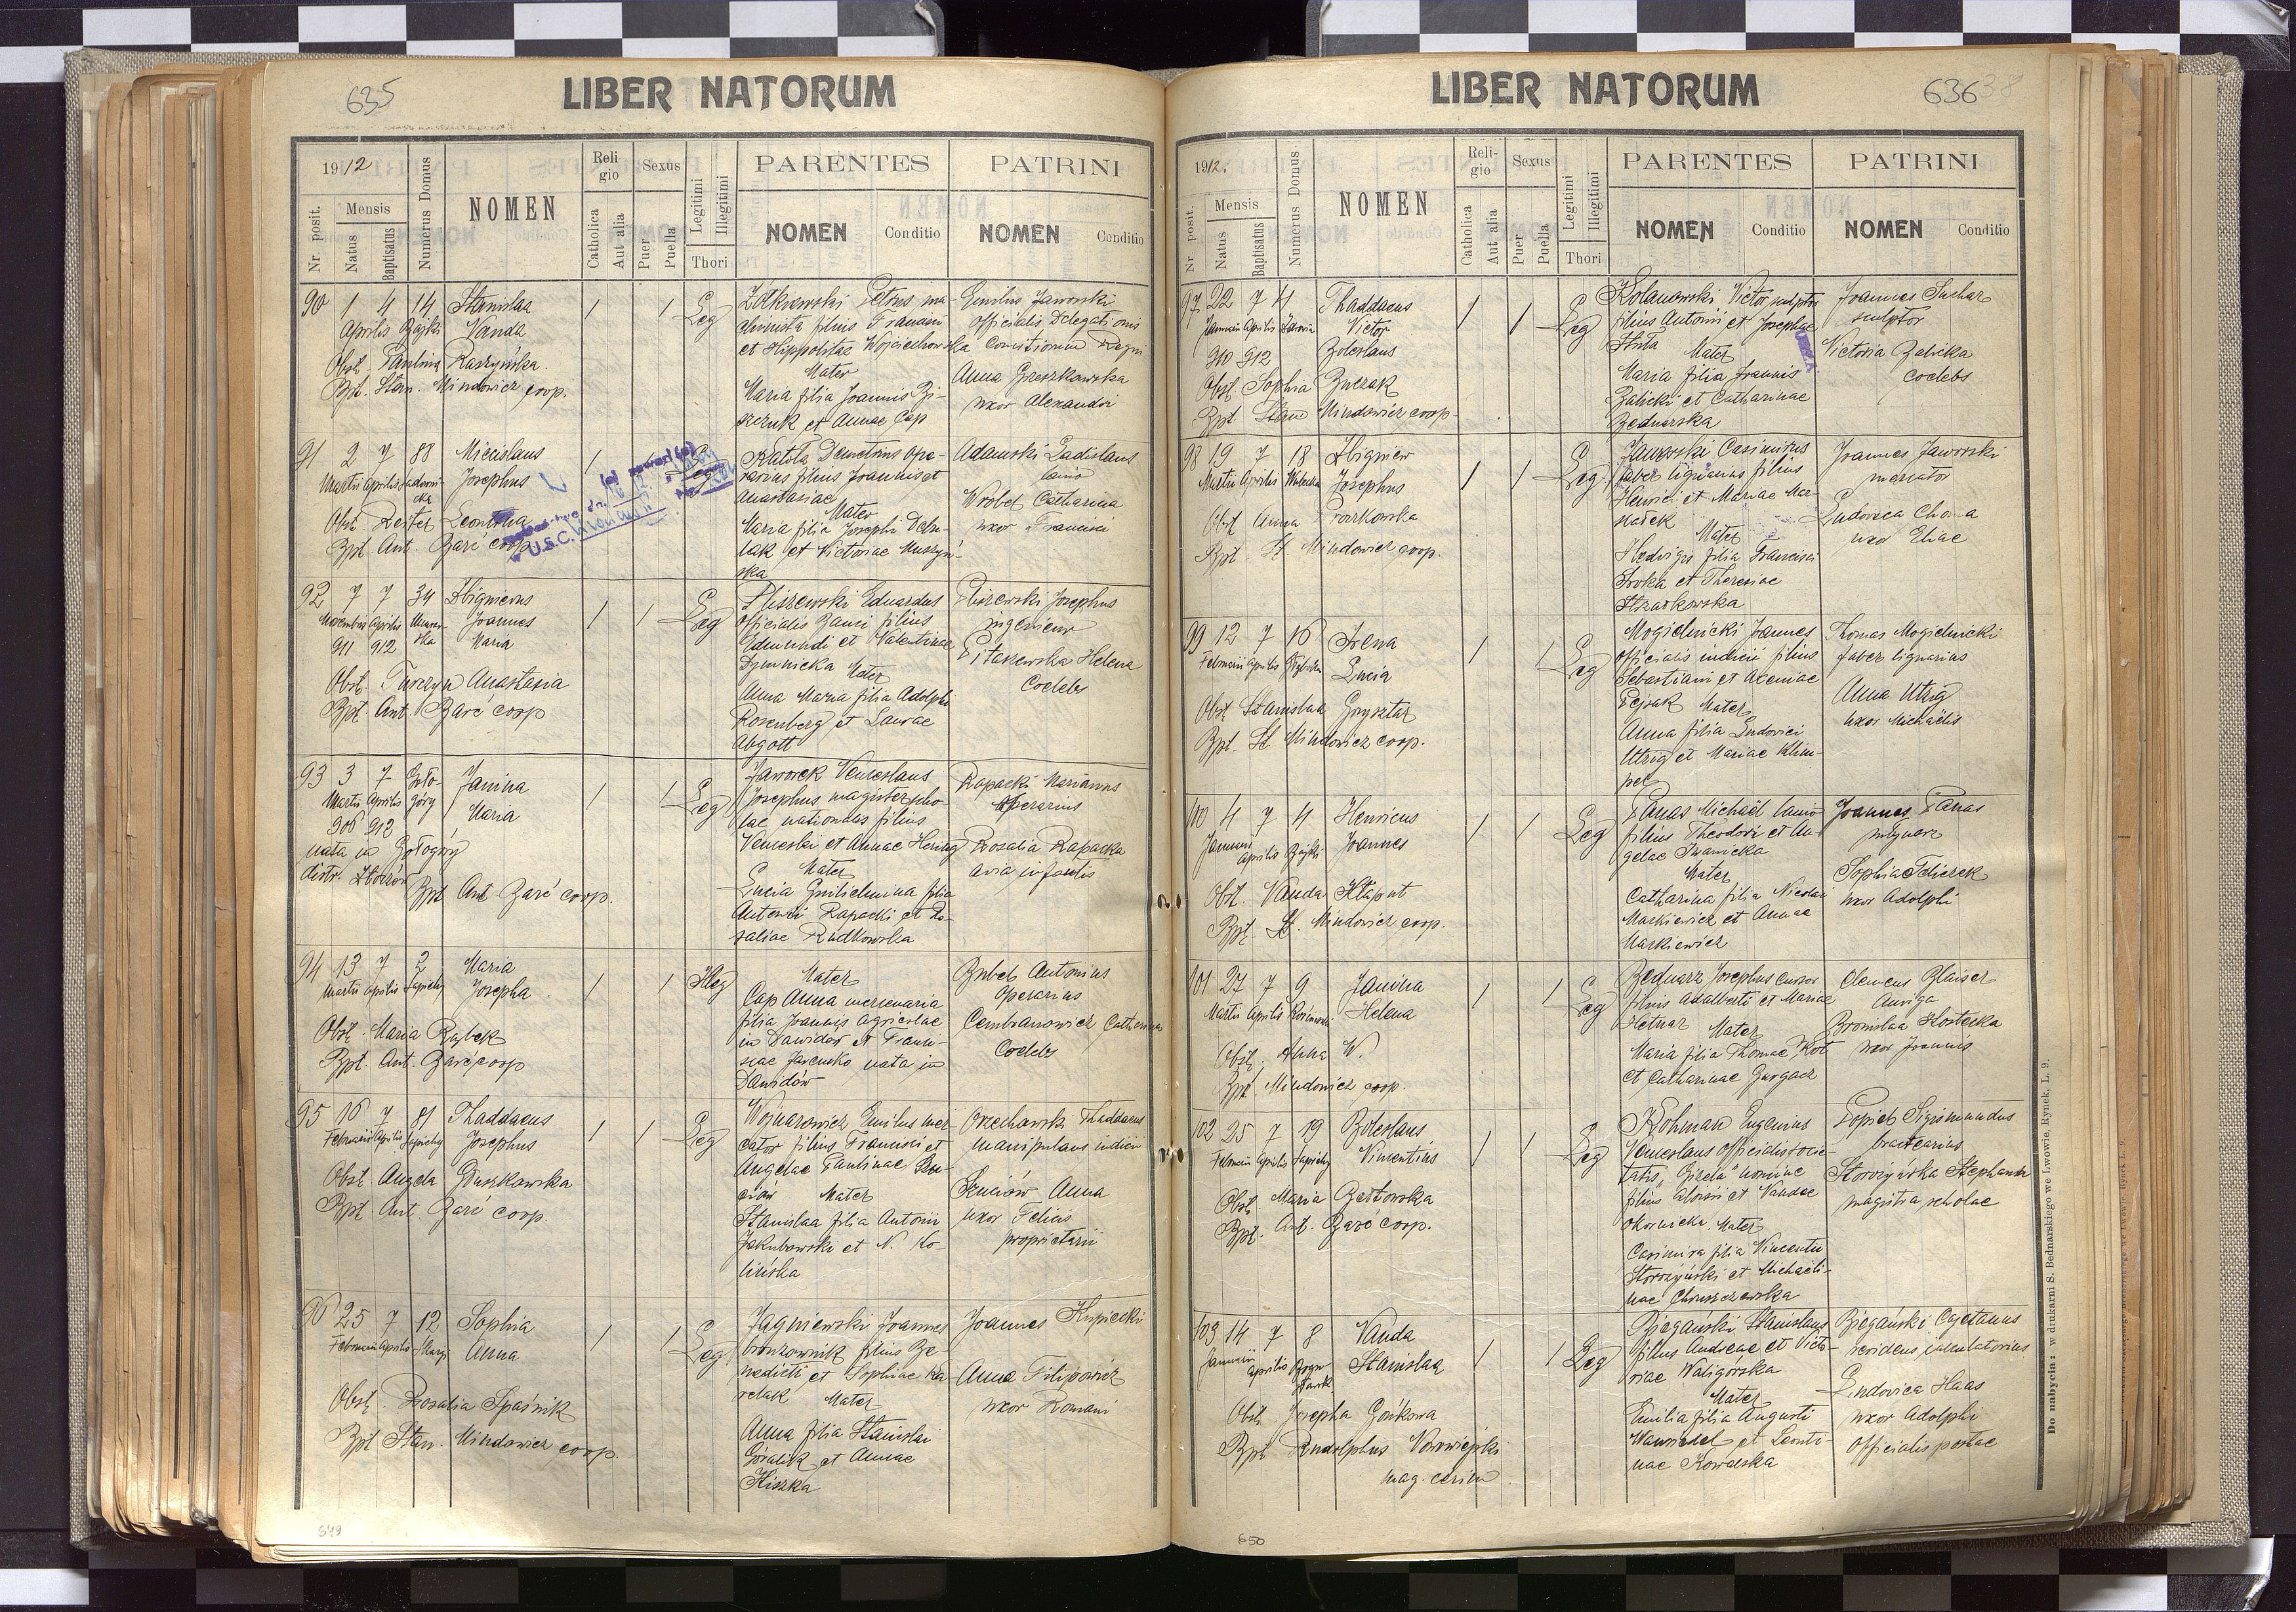 635
LIBER NATORUM
1912
Nr. posit.
Mensis
Natus
Baptisatus
Numerus Domus
NOMEN
Religio
Catholica
Aut alia
Sexus
Puer
Puella
Legitimi
Illegitimi
Thori
PARENTES
NOMEN Conditio
PATRINI
NOMEN Conditio
90 1 4 14 Stanislaa
Aprilis Bajki Vanda
Obst. Paulina Raszyńska
Bpt. Stan. Mindowicz coop.
1 1 Leg
Żółkiewski Petrus ma-
chinista filius Francisci
et Hippolitae Wojciechowska
Mater
Maria filia Joannis Bi-
szczuk et Annae Cap
Emilius Jaworski
officialis Delegationis
Comitiorum Regni
Anna Greszkowska
uxor Alexandri
91 2 7 88 Micislaus
Martii Aprilis Josephus
Obst. Rester Leontina
Bpt. Ant. Barć coop
U.S.C.
1 Leg
Katola Demetrius ope-
rarius filius Joannis et
Anastasiae
Mater
Maria filia Josephi Debu-
lak et Victoriae Muszyń-
ska
Adamski Ladislaus
lanio
Wróbel Catharina
uxor Francisci
92 7 7 34 Zbignieus
Novembris Aprilis Joannes
911 912 Maria
Obst. Turczyn Anastasia
Bpt. Ant. Barć coop
1 1 Leg
Pliszewski Eduardus
officialis Banci filius
Edmundi et Valentinae
Dymnicka Mater
Anna Maria filia Adolphi
Rosenberg et Laurae
Abgott
Pliszewski Josephus
ingenieur
Pitaszewska Helena
Coelebs
93 3 7 Goło- Janina
Martii Aprilis góry Maria
906 912
nata in Gołogóry
distr. Złoczów
Bpt Ant Barć coop.
1 1 Leg
Jaworek Venceslaus
Josephus magister scho-
lae nationalis filius
Venceslai et Annae Hering
Mater
Lucia Guilielmina filia
Antonii Rapacki et Ro-
saliae Rudkowska
Rapacki Marianus
operarius
Rosalia Rapacka
avia infantis
94 13 7 2 Maria
Martii Aprilis Sapiehy Josepha
Obst. Maria Rybek
Bpt. Ant. Barć coop
1 1 Illeg
Mater
Cap Anna mercenaria
filia Joannis agricolae
in Dawidów et Franci-
scae Jarensko nata in
Dawidów
Bubel Antonius
operarius
Cembranowicz Catharina
Coelebs
95 16 7 81 Thaddaeus
Februarii Aprilis Sapiehy Josephus
Obst Angela Gruszkowska
Bpt. Ant Barć coop.
1 1 Leg
Wojnarowicz Emilus mer-
cator filius Francisci et
Angelae Paulinae Szu-
ciów Mater
Stanislaa filia Antonii
Jakubowski et N. Ko-
lińska
Orzechowski Thaddaeus
manipulans indicii
Szuciów Anna
uxor Felicis
proprietarii
96 25 7 12 Sophia
Februarii Aprilis Skargi Anna
Obst. Rosalia Spaśnik
Bpt Stan. Mindowicz coop.
1 1 Leg
Jagniewski Joannes
bronzownik filius Be-
nedicti et Sophiae Ka-
relak Mater
Anna filia Stanislai
Góralik et Annae
Kiszka
Joannes Kupiecki
Anna Filipowicz
uxor Romani
549
636
LIBER NATORUM
1912.
Nr. posit.
Mensis
Natus
Baptisatus
Numerus Domus
NOMEN
Religio
Catholica
Aut alia
Sexus
Puer
Puella
Legitimi
Illegitimi
Thori
PARENTES
NOMEN Conditio
PATRINI
NOMEN Conditio
97 22 7 4 Thaddaeus
Januarii Aprilis Victor
910 912 Boleslaus
Obst Sophia Buczak
Bpt. Stan Mindowicz coop
1 1 Leg
Kolanowski Victor sculptor
filius Antonii et Josephae
Huta
Mater
Maria filia Joannis
Balicki et Catharinae
Bednarska
Joannes Suchar
sculptor
Victoria Balicka
Coelebs
98 19 7 18 Zbigniew
Martii Aprilis Josephus
Obst Anna Porzkowska
Bpt St Mindowicz coop.
1 1 Leg
Jaworski Casimirus
faber lignarius filius
Henrici et Mariae Mar-
szałek
Mater
Hedvigis filia Francisci
Sroka et Theresiae
Straskowska
Joannes Jaworski
mercator
Ludovica Choma
uxor Eliae
99 12 7 16 Irena
Februarii Aprilis Lucia
Obst Stanislaa Gryształ
Bpt. St Mindowicz coop.
1 1 Leg
Mogielnicki Joannes
officialis indicii filius
Sebastiani et Axeniae
Pejsak Mater
Anna filia Ludovici
Utrig et Mariae Klim-
pel
Thomas Mogielnicki
faber lignarius
Anna Utrig
uxor Michaëlis
100 4 7 4 Henricus
Januarii Aprilis Bajki Joannes
Obst. Vanda Kłaput
Bpt. St. Mindowicz coop.
1 1 Leg
Panas Michaël lanio
filius Theodori et An-
gelae Iwanicka
Mater
Catharina filia Nicolai
Markiewicz et Annae
Markiewicz
Joannes Panas
młynarz
Sophia Feliczek
uxor Adolphi
101 27 7 9 Janina
Martii Aprilis Helena
Obst. Anna W.
Bpt. Mindowicz coop.
1 1 Leg
Bednarz Josephus cursor
filius Adalberti et Mariae
Hetnar Mater
Maria filia Thomae Kot
et Catharinae Gurgacz
Clemens Blaiser
Auriga
Bronislaa Kostecka
uxor Joannis
102 25 7 19 Boleslaus
Februarii Aprilis Sapiehy Vincentius
Obst. Maria Bestowska
Bpt. Ant. Barć coop.
1 1 Leg
Kohman Eugenius
Venceslaus officialis socie-
tatis "Gizela" nomine
filius Aloisii et Vandae
Okornicka. Mater
Casimira filia Vincentii
Storożyński et Michaeli-
nae Chruszczewska
Popiel Sigismundus
bractearius
Storożyńska Stephania
magistra scholae
103 14 7 8 Vanda
Januarii Aprilis Stanislaa
Obst Josepha Gońkowa
Bpt Rudolphus Nowowiejski
mag. cerim
1 1 Leg
Biegański Stanislaus
filius Andreae et Victo-
riae Waligórska
Mater
Emilia filia Augusti
Wawriedel et Leonti-
nae Kowalska
Biegański Cajetanus
revidens calculatorius
Ludovica Haas
uxor Adolphi
Officialis postae
Do nabycia: w drukarni S. Bednarskiego we Lwowie, Rynek, L. 9.
650